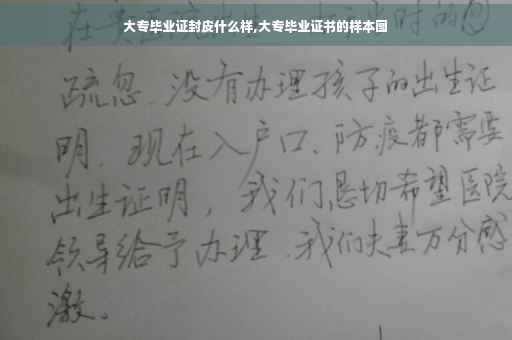 大专毕业证封皮什么样,大专毕业证书的样本图
疏忽、没有办理孩子的出生证
明.现在入户口、防疫都需要
出生证明，我们恳切希望医院
领导给予办理.我们夫妻万分感
激。